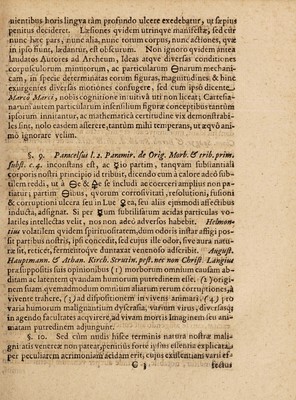 uientibus horis lingva tàm profundo ulcere exedebatur, ut sæpius
penitus decideret. Læsiones quidem utrinqve manifestæ, sed cur
nunc hæc pars, nunc alia, nunc totum corpus, nunc actiones, quæ
in ipso fiunt, lædantur, est obscurum. Non ignoro quidem antea
laudatos Autores ad Archeum, Ideas atque diversas conditiones
corpusculorum minutorum, ac particularum 🜔narum mechani-
cam, in specie determinatas eorum figuras, magnitudines & hinc
exurgentes diversas motiones confugere, sed cum ipsô dicente
Marcô Marci, nobis cognitione in intimâ uti non liceat; Cartesia-
narum autem particularum insensilium figuræ conceptibus tantùm
ipsorum innitantur, ac mathematicâ certitudine vix demonstrabi-
les sint, nolo easdem asserere, tantùm mihi temperans, ut æqvô ani-
mô ignorare valeam.
§. 9. Paracelsus l. 2. Paramir. de Orig. Morb. & trib. prim.
subst. c. 4. inconstans est, ac ☿io partim, tanqvam substantiali
corporis nostri principio id tribuit, dicendo cum à calore adeò sub-
tilem reddi, ut à 🜔e & 🜍e se includi ac coerceri ampliùs non pa-
tiatur; partim 🜔ibus, quorum corrosivitati, resolutioni, fusioni
& corruptioni ulcera seu in Lue ♀ea, seu aliis ejusmodi affectibus
inducta, adsignat. Si per ☿um subtilissarum acidas particulas vo-
latiles intellectas velit, nos non adeò adversos habebit. Helmon-
tius volatilem quidem spirituositatem, dum odoris instar affigi pos-
sit partibus nostris, ipsi concedit, sed cujus ille odor, sive aura natu-
ræ sit, reticet, fermentoqve duntaxat venenoso adscribit. August.
Hauptmann & Athan. Kirch. Scrutin. pest. nec non Christ. Langius
præsuppositis suis opinionibus (1) morborum omnium causam ab-
ditam ac latentem quandam humorum putredinem esse. (2) origi-
nem suam quemadmodum omnium aliarum rerum corruptiones, à
vivente trahere, (3) ad dispositionem in vivens animari. (4) pro
varia humorum malignantium dyscrasia, varium virus, diversasq;
in agendo facultates acqvirere, ad vivam mortis Imaginem seu ani-
matam putredinem adjungunt.
§. 10. Sed cùm nudis hisce terminis natura nostræ mali-
gni atis venereæ non pateat, penitiùs fortè ipsius essentia explicata,
per peculiarem acrimoniam acidam erit, cujus existentiam varii ef-
C 3
fectus